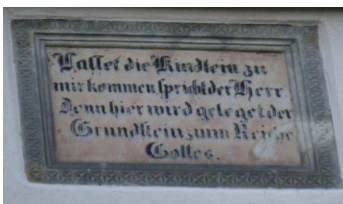 Lasset die Kindlein zu
mir kommen spricht der Herr.
Denn hier wird geleget der
Grundstein zum Reiche
Gottes.